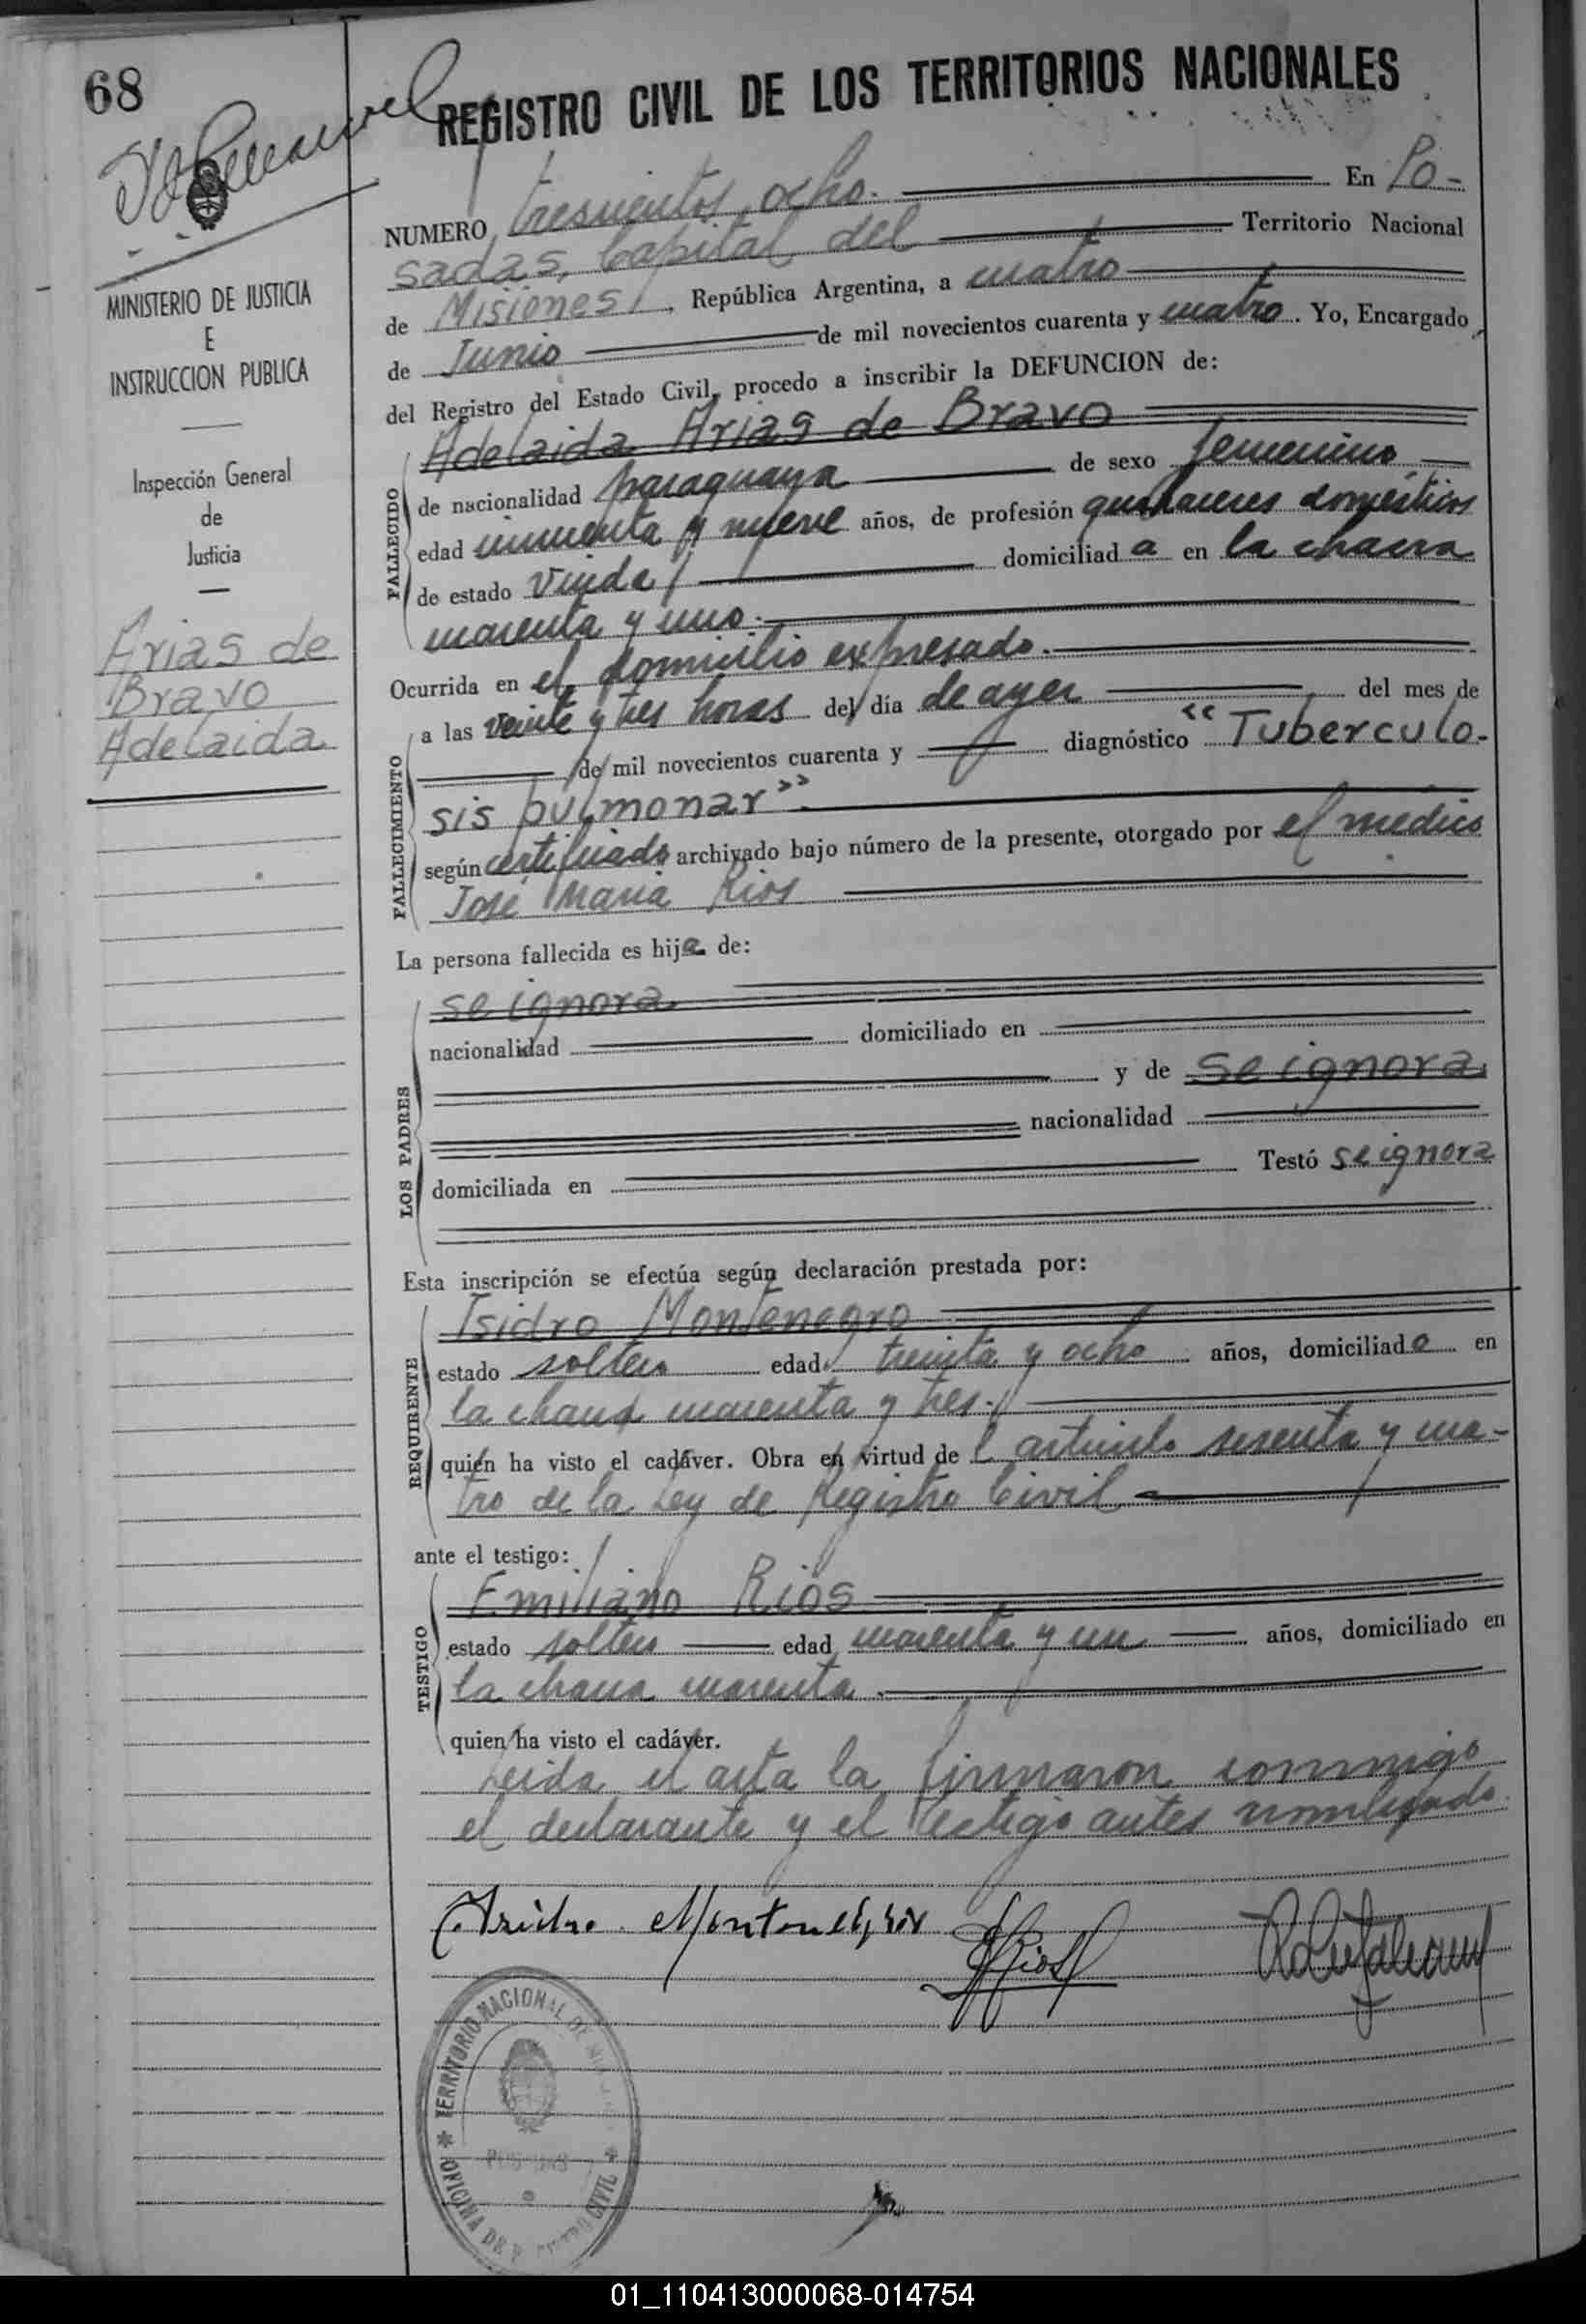 68
REGISTRO CIVIL DE LOS TERRITORIOS NACIONALES
NUMERO trescientos ocho. En Po-
sadas, Capital del Territorio Nacional
de Misiones, República Argentina, a cuatro
de Junio de mil novecientos cuarenta y cuatro. Yo, Encargado
del Registro del Estado Civil, procedo a inscribir la DEFUNCION de:
MINISTERIO DE JUSTICIA
E
INSTRUCCION PUBLICA
Inspección General
de
Justicia
Arias de
Bravo
Adelaida
FALLECIDO
Adelaida Arias de Bravo
de nacionalidad paraguaya de sexo femenino
edad cincuenta y nueve años, de profesión quehaceres domésticos
de estado viuda domiciliada en la chacra
cuarenta y uno.
Ocurrida en el domicilio expresado.
FALLECIMIENTO
a las veinte y tres horas del día de ayer del mes de
de mil novecientos cuarenta y diagnóstico "Tuberculo-
sis pulmonar".
según certificado archivado bajo número de la presente, otorgado por el médico
José María Rios
La persona fallecida es hija de:
LOS PADRES
se ignora
nacionalidad domiciliado en
y de se ignora
nacionalidad
domiciliada en Testó se ignora
Esta inscripción se efectúa según declaración prestada por:
REQUIRENTE
Isidro Montenegro
estado soltero edad treinta y ocho años, domiciliado en
la chacra cuarenta y tres.
quién ha visto el cadáver. Obra en virtud del artículo sesenta y cua-
tro de la Ley de Registro Civil
ante el testigo:
TESTIGO
Emiliano Rios
estado soltero edad cuarenta y un años, domiciliado en
la chacra cuarenta.
quien ha visto el cadáver.
Leida el acta la firmaron conmigo
el declarante y el testigo antes nombrado.
Isidro Montenegro
Rios
TERRITORIO NACIONAL DE
OFICINA DE CIVIL
01_110413000068-014754